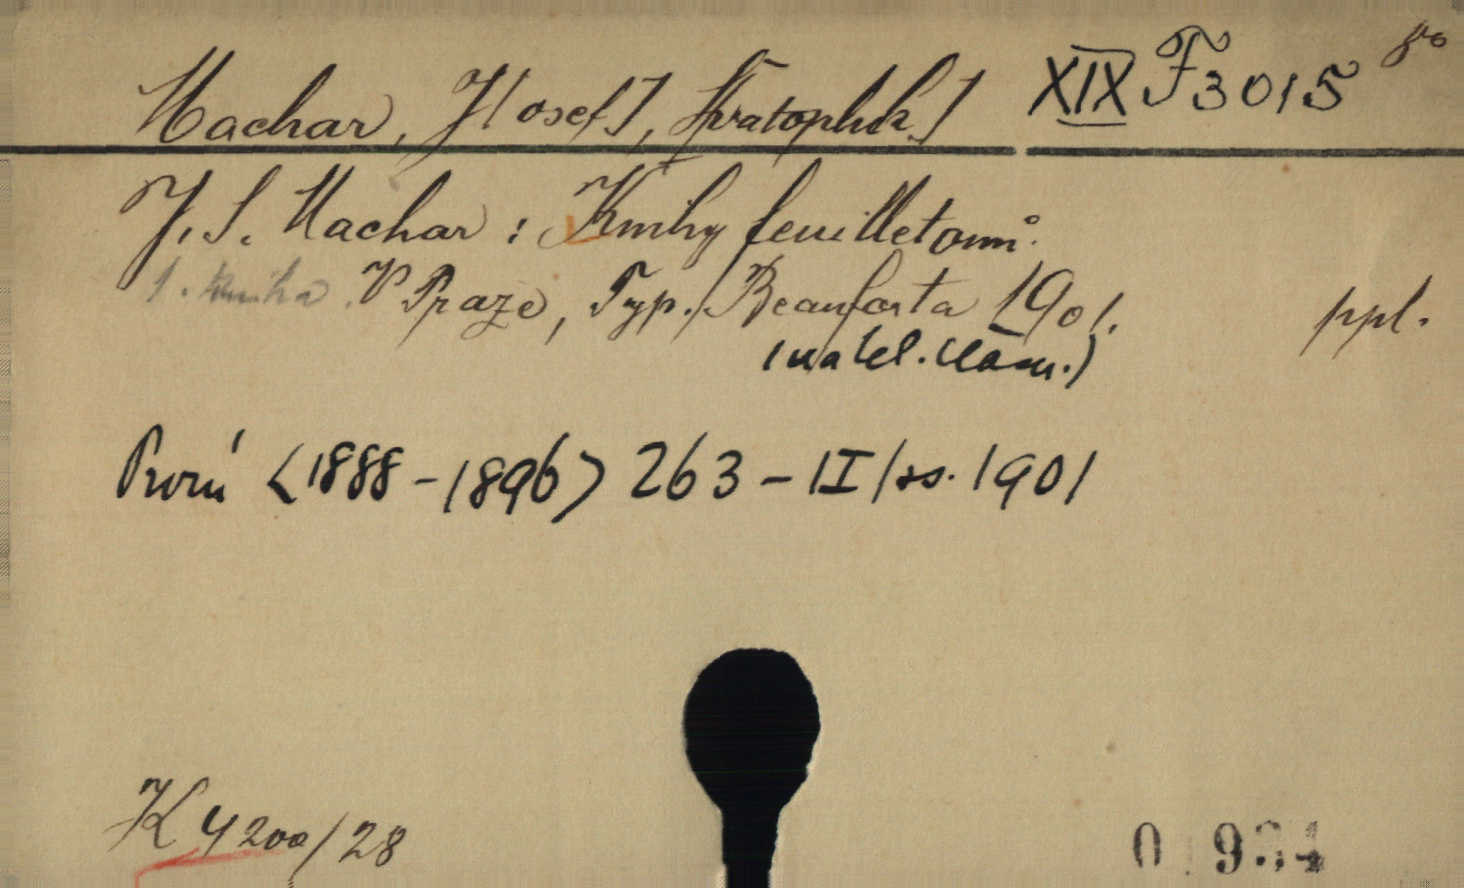 Machar, J[osef], Svatopluk.] XIX F 3015 8°
J. S. Machar: Knihy feuilletonů.
1. kniha V Praze, Typ. Beauforta 1901. ppl.
První <1888-1896> 263 - II ss. 1901
K 4200/28